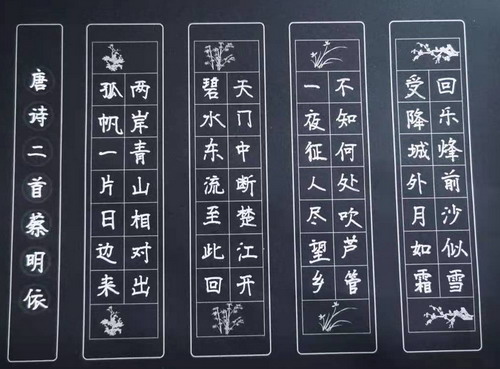 回乐烽前沙似雪
受降城外月如霜
不知何处吹芦管
一夜征人尽望乡
天门中断楚江开
碧水东流至此回
两岸青山相对出
孤帆一片日边来
唐诗二首蔡明依